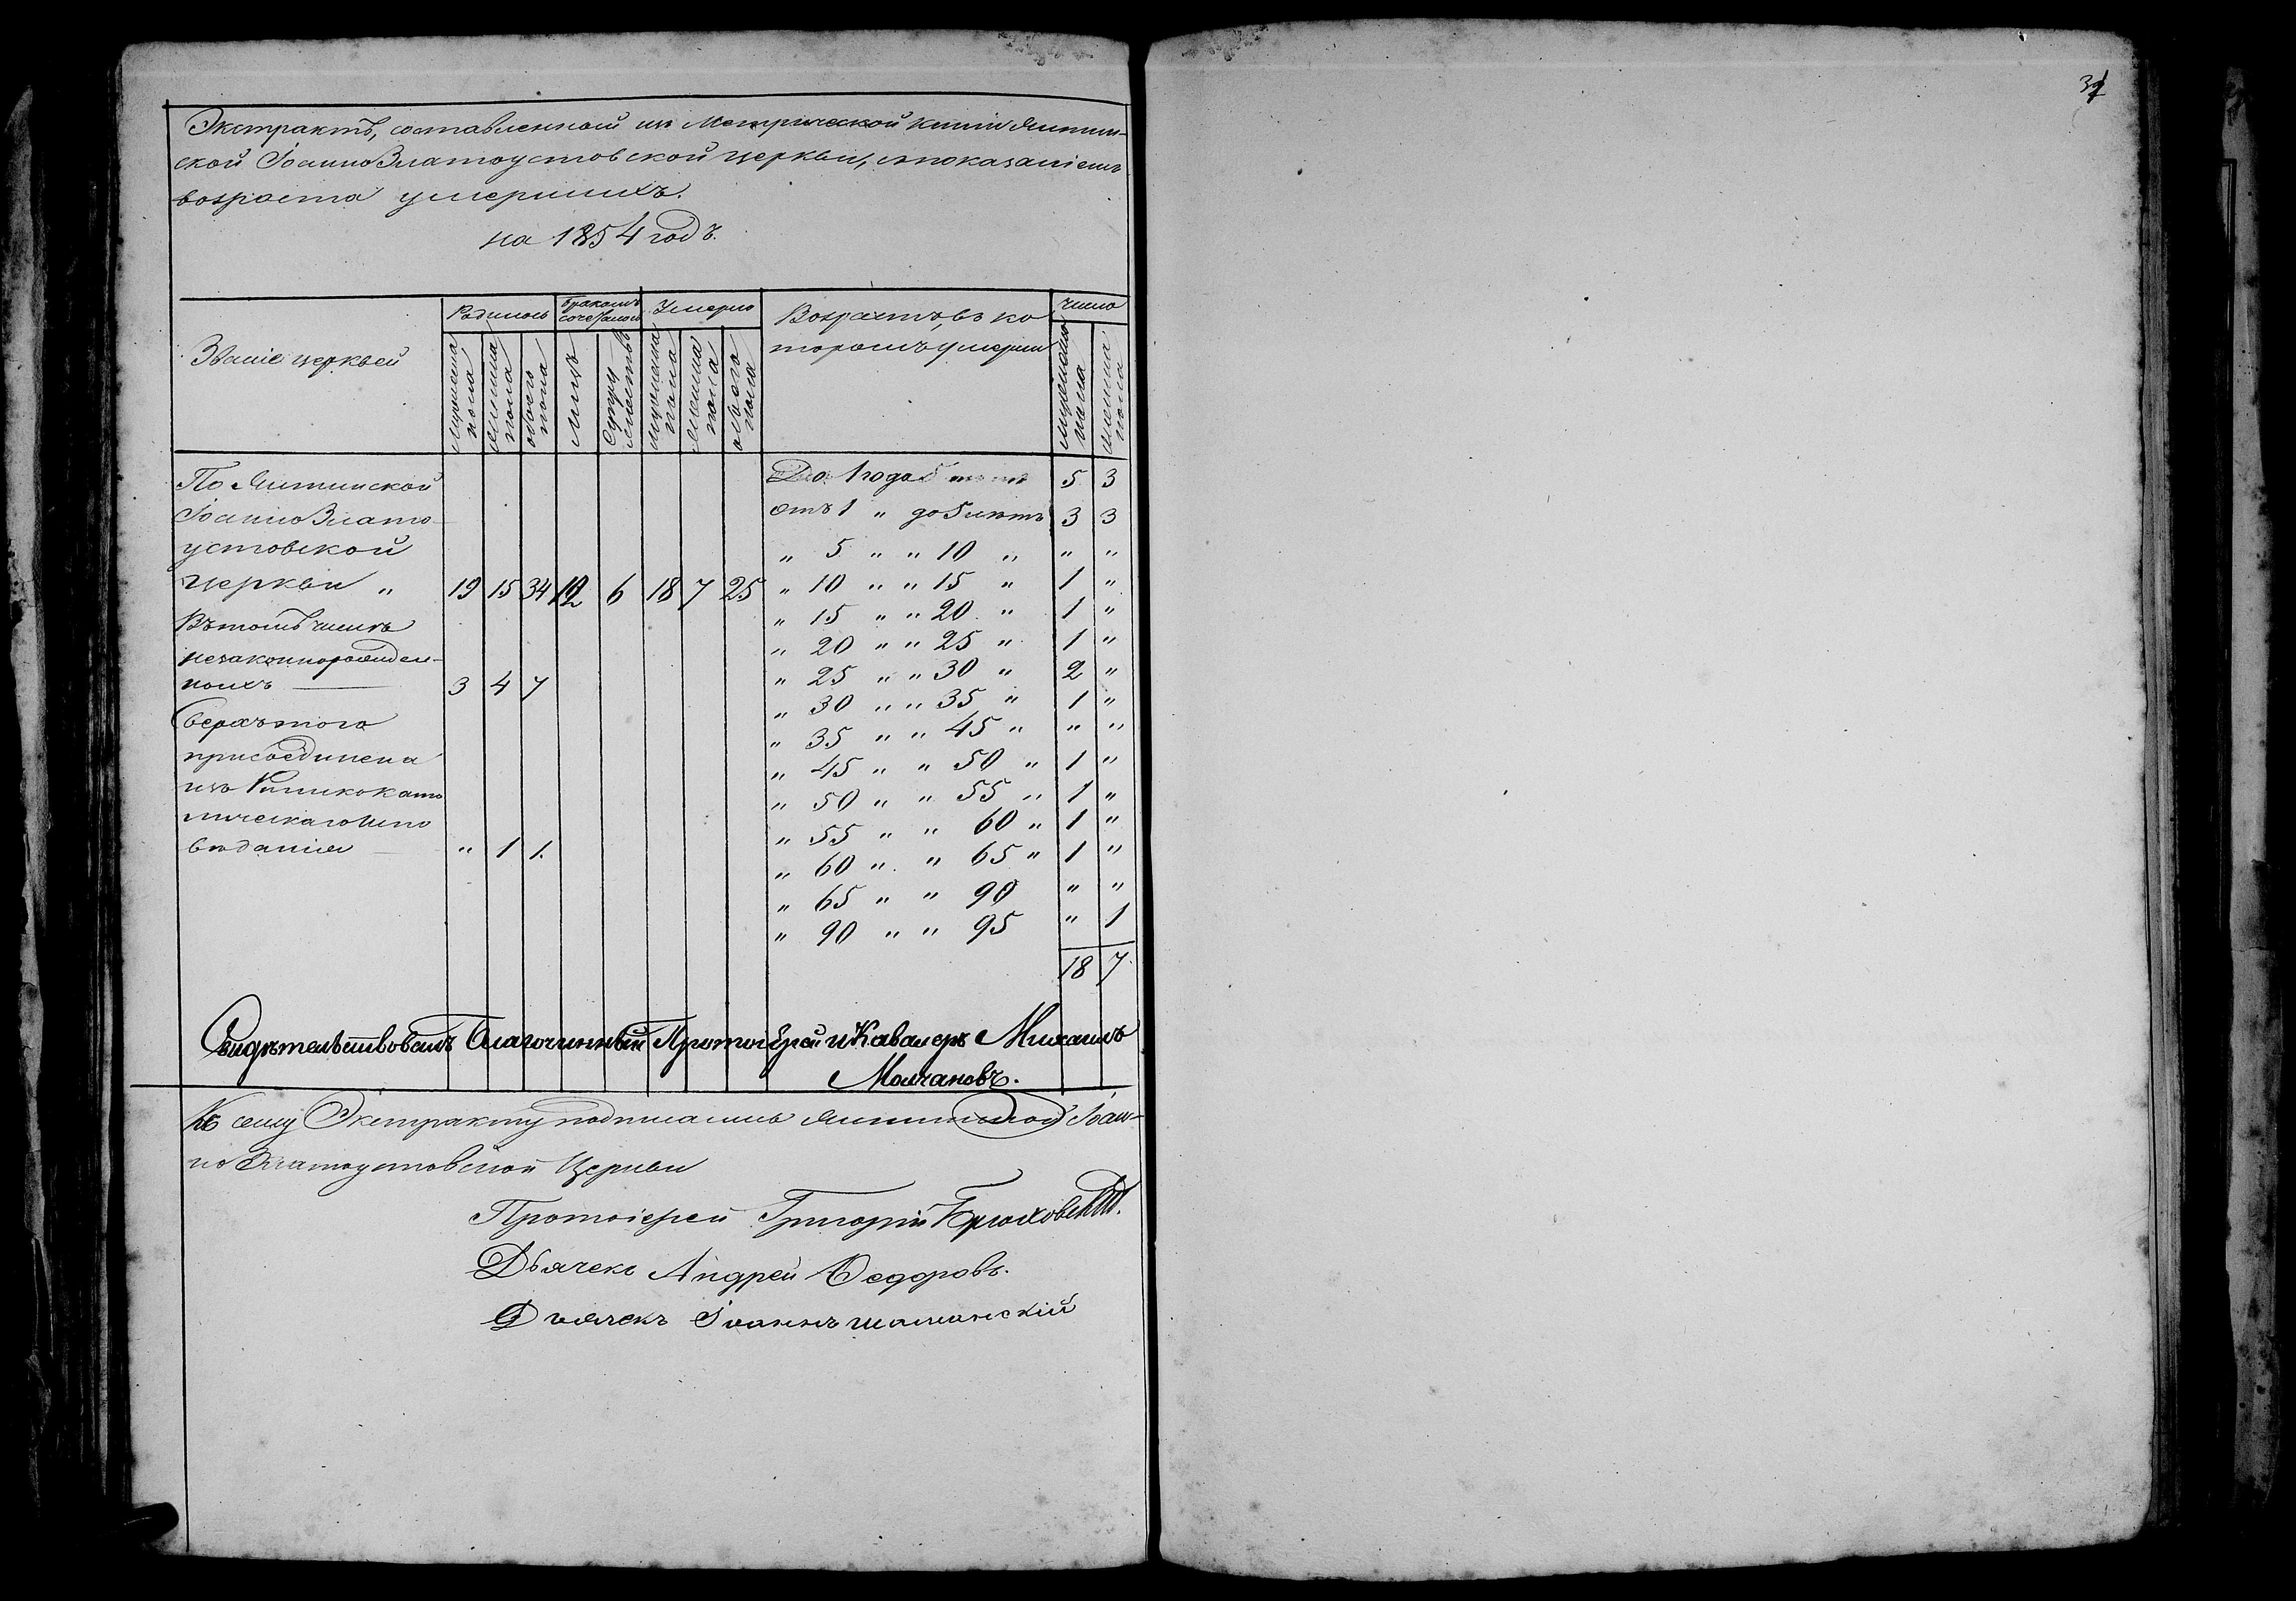 Экстрактъ, составленный изъ Метрической книги Ялтин-
ской ІоанноЗлатоустовской церкви, съ показаніемъ
возраста умершихъ.
на 1854 годъ.
Званіе церквей
Родилось
Бракомъ сочеталось
Умерло
Возрастъ, въ ко
торомъ умерли
Число
мужеска пола
женска пола
обоего пола
лицъ
супружествъ
мужеска пола
женска пола
обоего пола
мужеска пола
женска пола
По Ялтинской
ІоанноЗлато-
устовской
церкви „ 19 15 34 12 6 18 7 25
Въ томъ числѣ
незаконнорожден-
ныхъ — 3 4 7
Сверхъ того
присоединена
изъ Римскокато
лическаго Испо
вѣданія — „ 1 1.
До 1 года 5 3
отъ 1 „ до 5 лѣтъ 3 3
„ 5 „ „ 10 „ „ „
„ 10 „ „ 15 „ 1 „
„ 15 „ „ 20 „ 1 „
„ 20 „ „ 25 „ 1 „
„ 25 „ „ 30 „ 2 „
„ 30 „ „ 35 „ 1 „
„ 35 „ „ 45 „ „ „
„ 45 „ „ 50 „ 1 „
„ 50 „ „ 55 „ 1 „
„ 55 „ „ 60 „ 1 „
„ 60 „ „ 65 „ 1 „
„ 65 „ „ 90 „ „
„ 90 „ „ 95 „ 1
18 7
Свидѣтельствовалъ Благочинный Протоіерей и Кавалеръ Михаилъ
Молчановъ.
Къ сему Экстракту подписались Ялтинской Іоан-
но Златоустовской Церкви
Протоіерей Григорій
Дьячекъ Андрей Ѳедоровъ.
Дьячекъ Іоаннъ Шаманскій